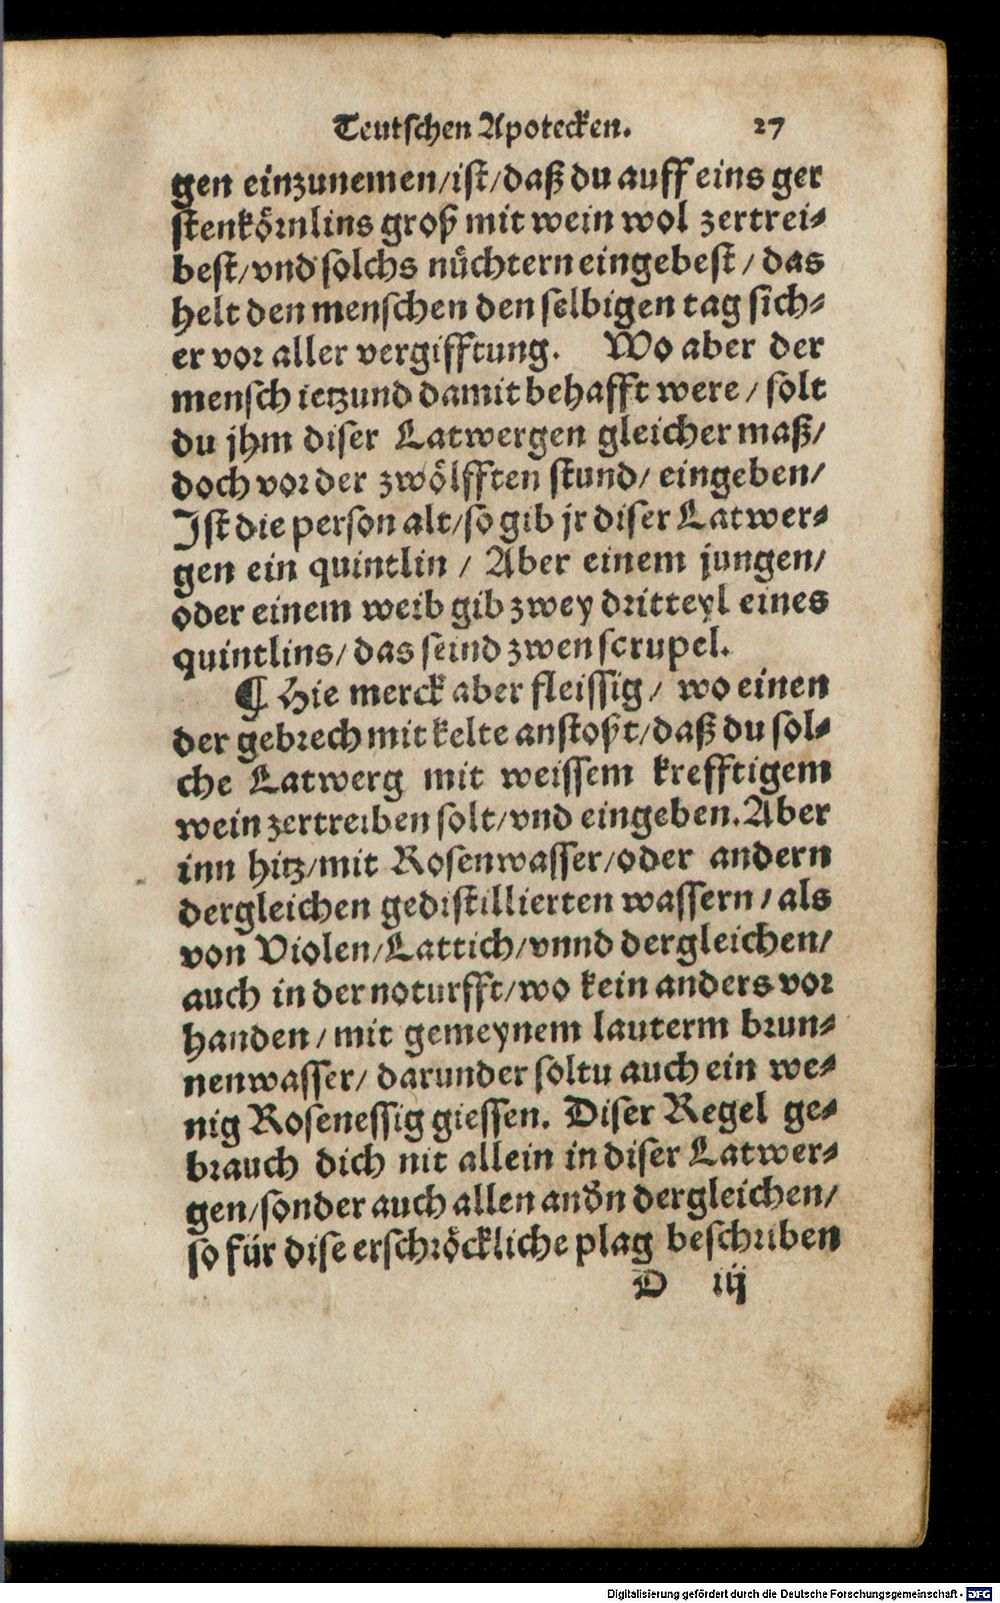 Teutschen Apotecken. 27
gen einzunemen/ist/daß du auff eins ger
stenkörnlins groß mit wein wol zertrei⸗
best/vnd solchs nüchtern eingebest/das
helt den menschen den selbigen tag sich⸗
er vor aller vergifftung. Wo aber der
mensch ietzund damit behafft were/solt
du jhm diser Latwergen gleicher maß/
doch vor der zwölfften stund/eingeben/
Ist die person alt/so gib jr diser Latwer⸗
gen ein quintlin/Aber einem jungen/
oder einem weib gib zwey dritteyl eines
quintlins/das seind zwen scrupel.
¶ Hie merck aber fleissig/wo einen
der gebrech mit kelte anstoßt/daß du sol⸗
che Latwerg mit weissem krefftigem
wein zertreiben solt/vnd eingeben. Aber
inn hitz/mit Rosenwasser/oder andern
dergleichen gedistillierten wassern/als
von Violen/Lattich/vnnd dergleichen/
auch in der noturfft/wo kein anders vor
handen/mit gemeynem lauterm brun⸗
nenwasser/darunder soltu auch ein we⸗
nig Rosenessig giessen. Diser Regel ge⸗
brauch dich nit allein in diser Latwer⸗
gen/sonder auch allen andn dergleichen/
so für dise erschröckliche plag beschriben
D iij
Digitalisierung gefördert durch die Deutsche Forschungsgemeinschaft - DFG